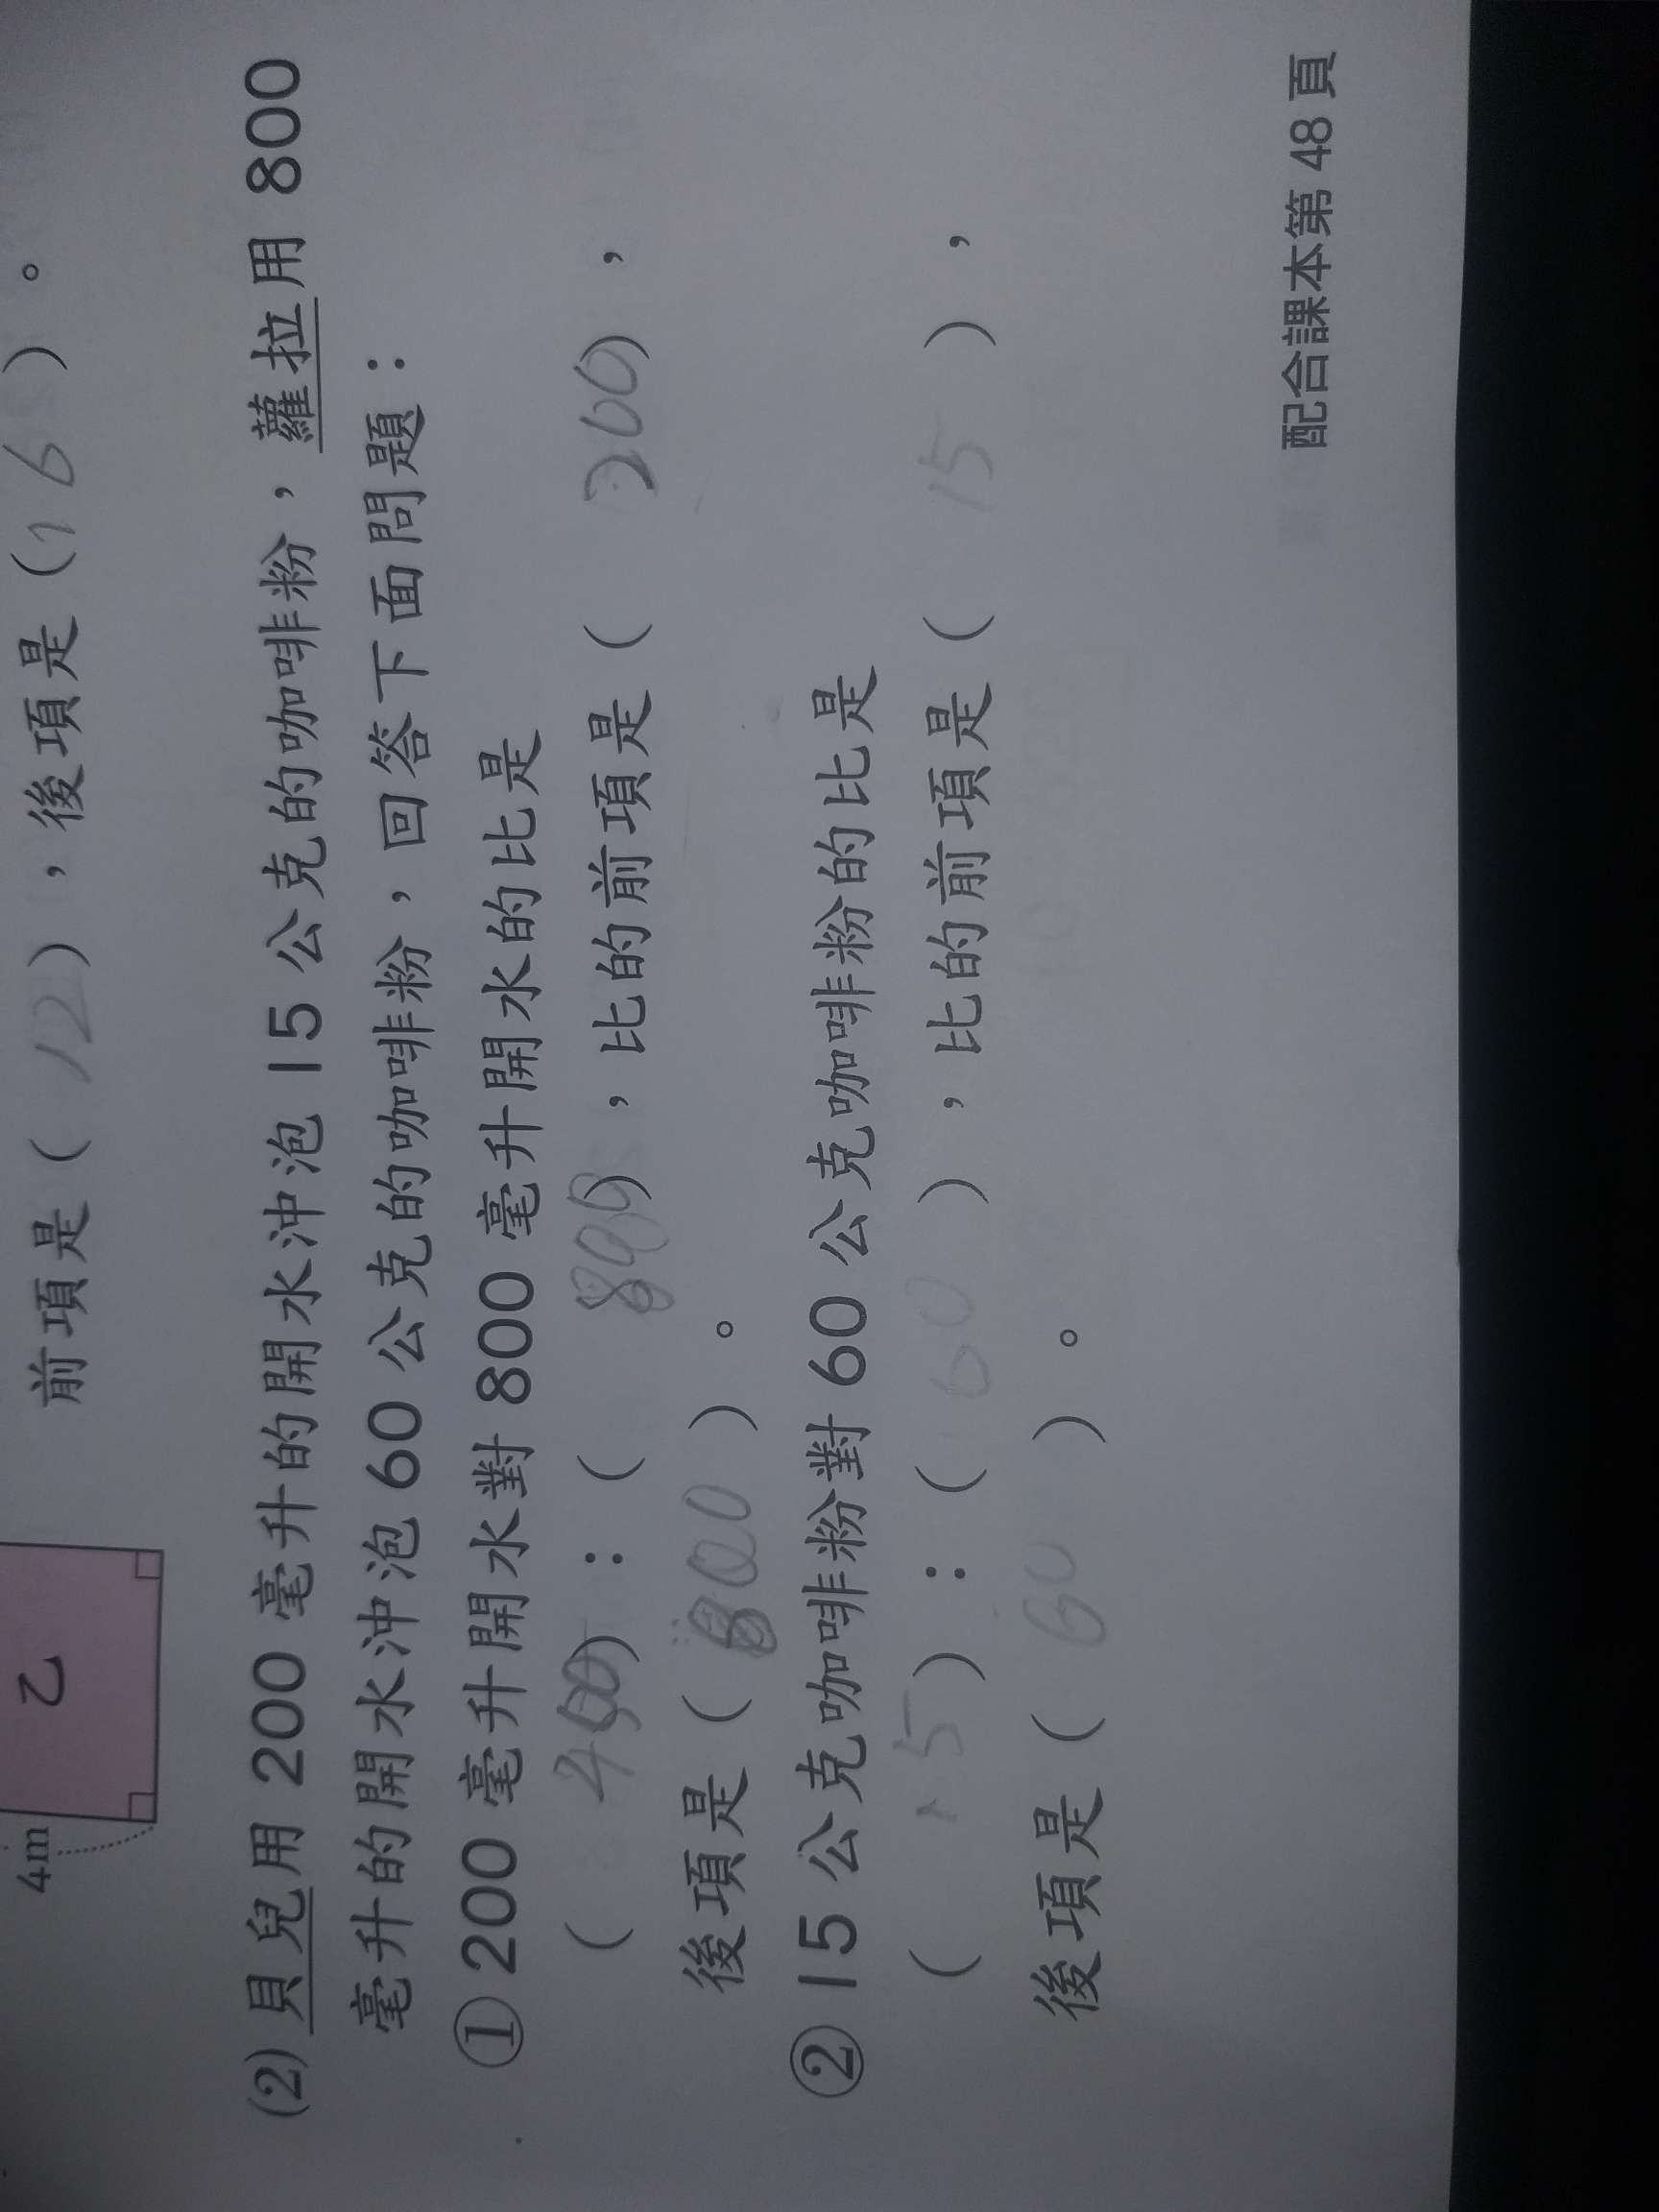 前項是( 12 ),後項是( 16 )。
乙
4m
(2) 貝兒用 200 毫升的開水沖泡 15 公克的咖啡粉,蘿拉用 800
毫升的開水沖泡 60 公克的咖啡粉,回答下面問題:
① 200 毫升開水對 800 毫升開水的比是
( ):( 800 ),比的前項是( 200 ),
後項是( 800 )。
② 15 公克咖啡粉對 60 公克咖啡粉的比是
( 15 ):( 60 ),比的前項是( 15 ),
後項是( 60 )。
配合課本第 48 頁